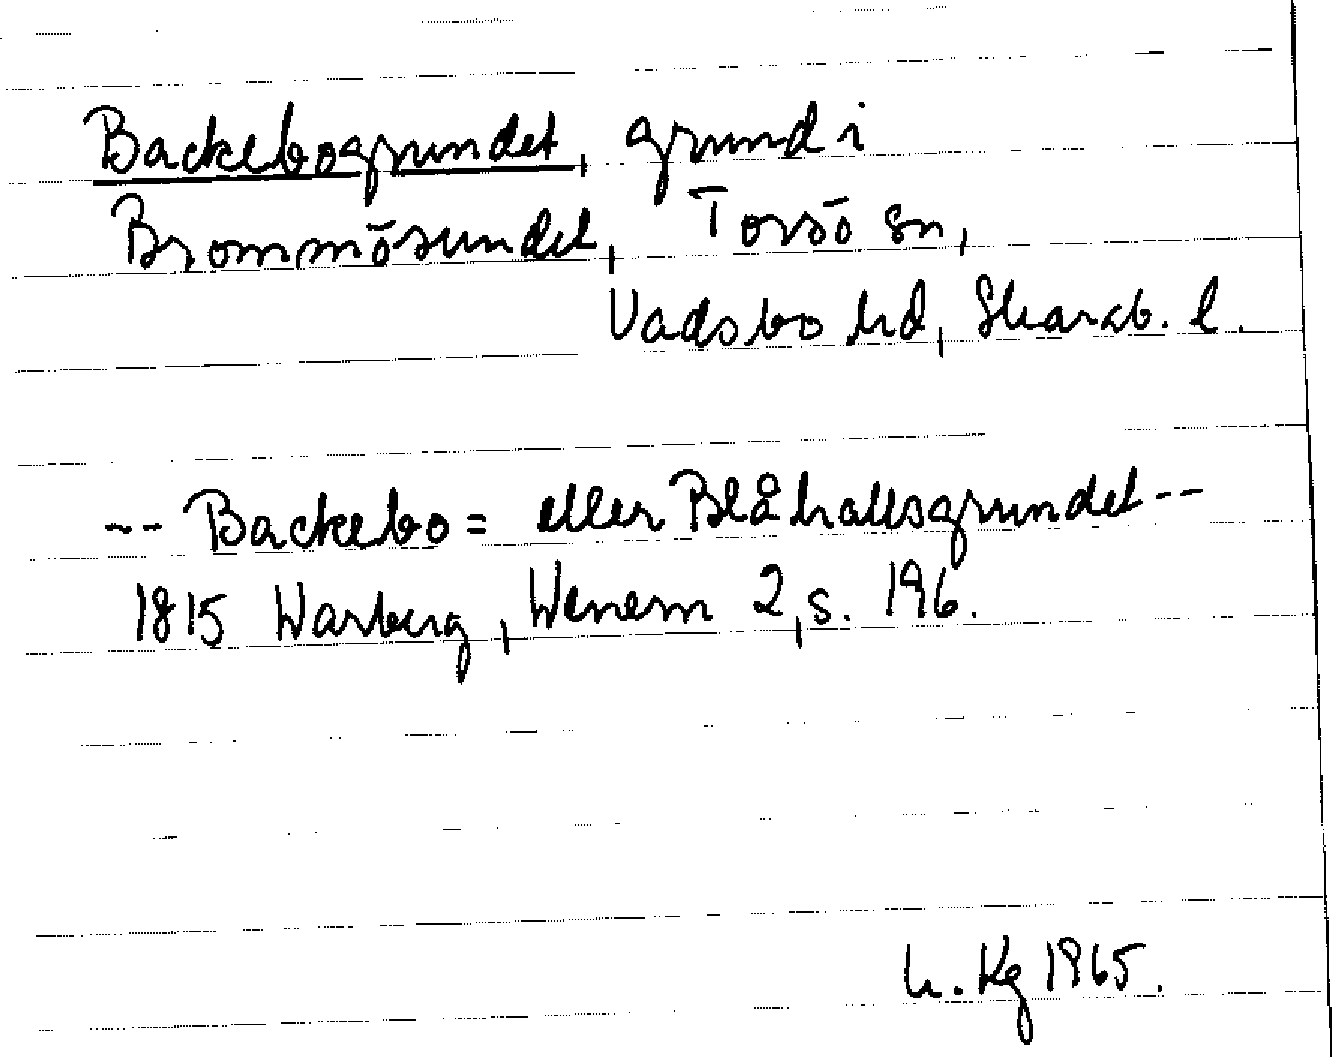 Backebogrundet, grund i
Brommösundet, Torsö sn,
Vadsbo hd, Skarab. l.
-- Backebo= eller Blåhallsgrundet --
1815 Warberg, Wenern 2, s. 196.
h. Kg 1965.